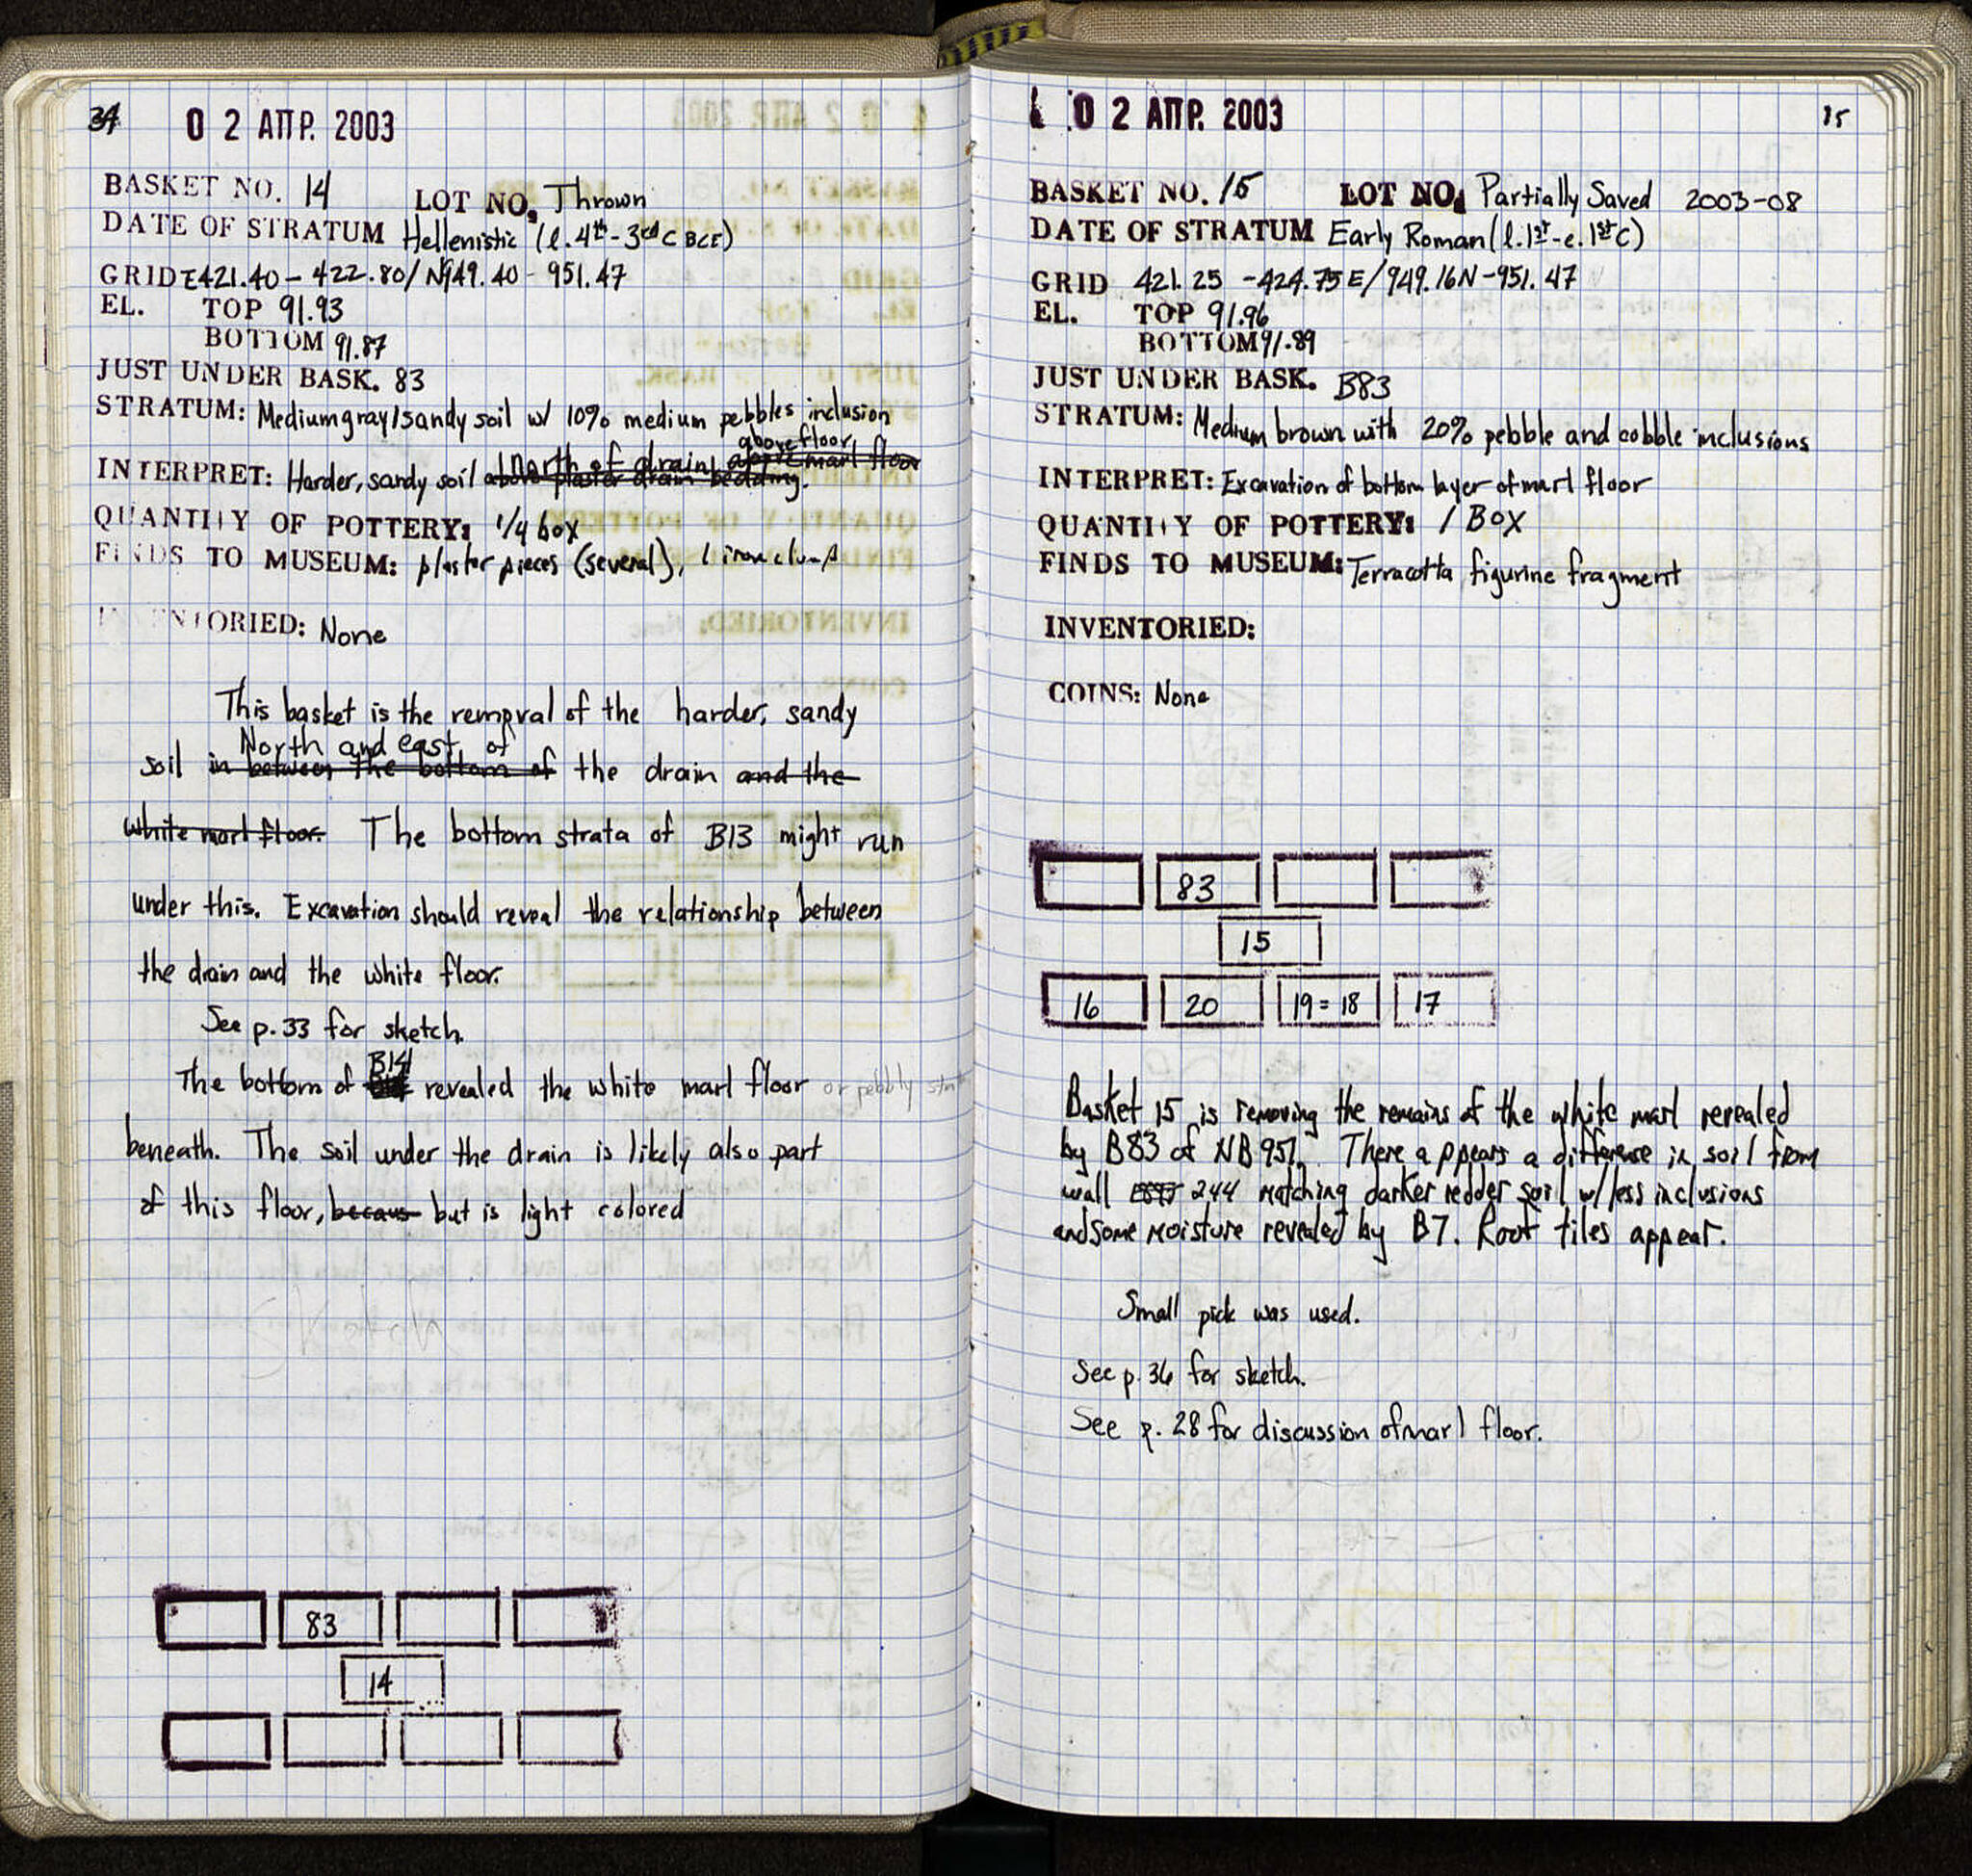 34
02 ΑΠΡ. 2003
BASKET NO. 14 LOT NO. Thrown
DATE OF STRATUM Hellenistic (l. 4th - 3rd C BCE)
GRID E421.40 - 422.80 / N949.40 - 951.47
EL. TOP 91.93
BOTTOM 91.87
JUST UNDER BASK. 83
STRATUM: Medium gray/sandy soil w/ 10% medium pebbles inclusion
above floor
INTERPRET: Harder, sandy soil north of drain, above marl floor
above plaster drain bedding.
QUANTITY OF POTTERY: 1/4 box
FINDS TO MUSEUM: plaster pieces (several), 1 iron clump
INVENTORIED: None
This basket is the removal of the harder, sandy
North and east of
soil in between the bottom of the drain and the
white marl floor. The bottom strata of B13 might run
under this. Excavation should reveal the relationship between
the drain and the white floor.
See p. 33 for sketch.
B14
The bottom of revealed the white marl floor or pebbly
beneath. The soil under the drain is likely also part
of this floor, becaus but is light colored
83
14
02 ΑΠΡ. 2003
15
BASKET NO. 15 LOT NO. Partially Saved 2003-08
DATE OF STRATUM Early Roman (l. 1st - e. 1st C)
GRID 421.25 - 424.75 E / 949.16 N - 951.47
EL. TOP 91.96
BOTTOM 91.89
JUST UNDER BASK. B83
STRATUM: Medium brown with 20% pebble and cobble inclusions
INTERPRET: Excavation of bottom layer of marl floor
QUANTITY OF POTTERY: 1 BOX
FINDS TO MUSEUM: Terracotta figurine fragment
INVENTORIED:
COINS: None
83
15
16 20 19=18 17
Basket 15 is removing the remains of the white marl revealed
by B83 of NB 951. There appears a difference in soil from
wall 244 matching darker redder soil w/ less inclusions
and some moisture revealed by B7. Roof tiles appear.
Small pick was used.
See p. 36 for sketch.
See p. 28 for discussion of marl floor.